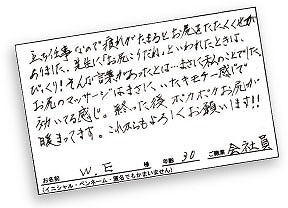 立ち仕事なので疲れがたまるとお尻をたたくくせが
ありました、先生に「お尻こりだね」といわれたときは、
びっくり!そんな言葉があったとは…まさに私のことでした
お尻のマッサージはまさに、いたキモチー感じで、
効いてる感じ。終った後 ポカポカお尻が
暖まってます。これからもよろしくお願いします!!
お名前 W.E 様 年齢 30 ご職業 会社員
(イニシャル・ペンネーム・匿名でもかまいません)